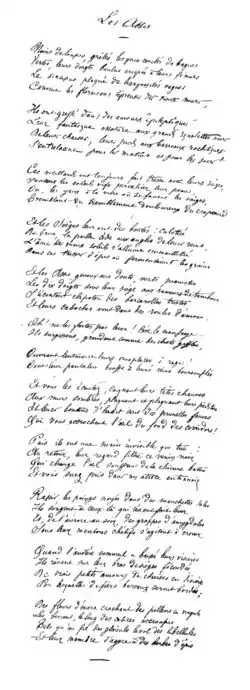 Les Assis
Noirs de loupes, grêlés, les yeux cerclés de bagues
Vertes, leurs doigts boulus crispés à leurs fémurs
Le sinciput plaqué de hargnosités vagues
Comme les floraisons lépreuses des vieux murs;
Ils ont greffé dans des amours épileptiques
Leur fantasque ossature aux grands squelettes noirs
De leurs chaises; leurs pieds aux barreaux rachitiques
S'entrelacent pour les matins et pour les soirs!
Ces vieillards ont toujours fait tresse avec leurs sièges
Sentant les soleils vifs percaliser leur peau
Ou, les yeux à la vitre où se fanent les neiges,
Tremblant du tremblement douloureux du crapaud
Et les Sièges leur ont des bontés: culottée
De brun, la paille cède aux angles de leurs reins;
L'âme des vieux soleils s'allume emmaillotée
Dans ces tresses d'épis où fermentaient les grains
Et les Assis, genoux aux dents, verts pianistes
Les dix doigts sous leur siège aux rumeurs de tambour
S'écoutent clapoter des barcarolles tristes
Et leurs caboches vont dans des roulis d'amour.
Oh! ne les faites pas lever! C'est le naufrage
Ils surgissent, grondant comme des chats giflés,
Ouvrant lentement leurs omoplates, ô rage!
Tout leur pantalon bouffe à leurs reins boursouflés
Et vous les écoutez, cognant leurs têtes chauves
Aux murs sombres, plaquant et plaquant leurs pieds tors
Et leurs boutons d'habit sont des prunelles fauves
Qui vous accrochent l'œil du fond des corridors!
Puis ils ont une main invisible qui tue:
Au retour, leur regard filtre ce venin noir
Qui charge l'œil souffrant de la chienne battue
Et vous suez pris dans un atroce entonnoir
Rassis, les poings noyés dans des manchettes sales
Ils songent à ceux-là qui les ont fait lever
Et, de l'aurore au soir, des grappes d'amygdales
Sous leurs mentons chétifs s'agitent à crever
Quand l'austère sommeil a baissé leurs visières
Ils rêvent sur leur bras de sièges fécondés
De vrais petits amours de chaises en lisière
Par lesquelles de fiers bureaux seront bordés;
Des fleurs d'encre crachant des pollens en virgule
Les bercent, le long des calices accroupis
Tels qu'au fil des glaïeuls le vol des libellules
- Et leur membre s'agace à des barbes d'épis